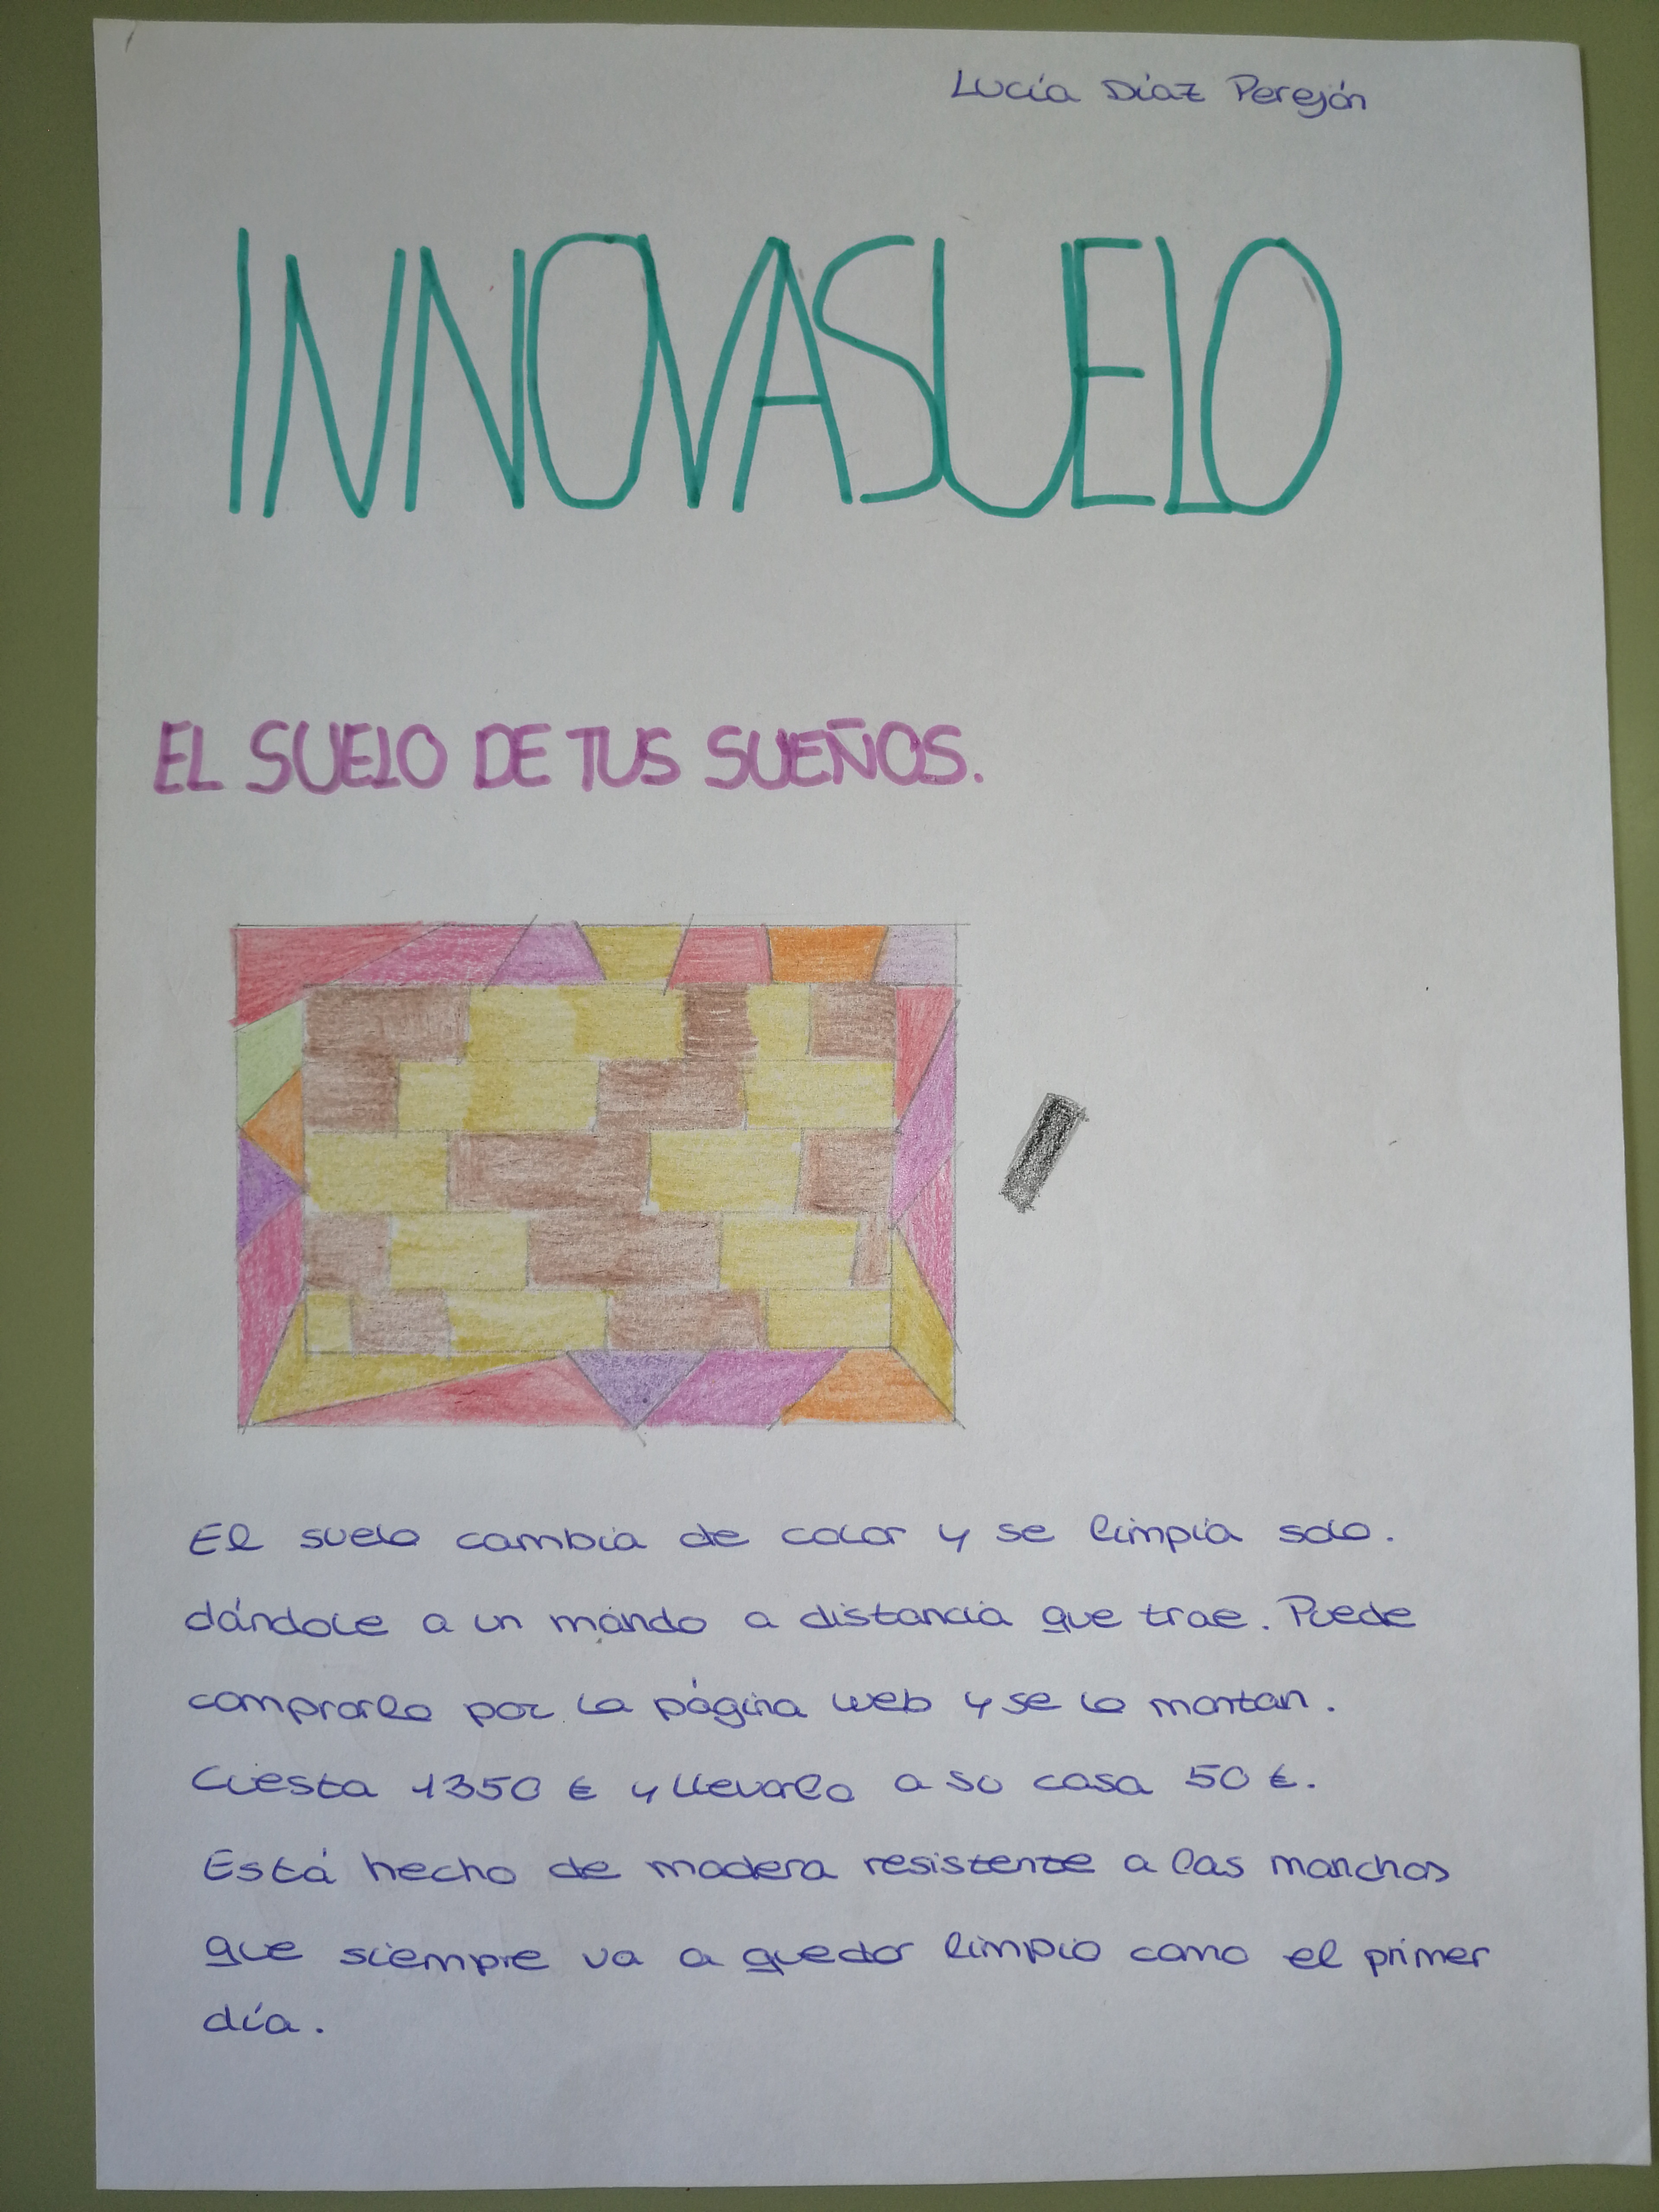 Lucía Díaz Perejón
INNOVASUELO
EL SUELO DE TUS SUEÑOS.
El suelo cambia de color y se limpia solo.
dándole a un mando a distancia que trae. Puede
comprarlo por la página web y se lo montan.
Cuesta 1350 € y llevarlo a su casa 50 €.
Está hecho de madera resistente a las manchas
que siempre va a quedar limpio como el primer
día.